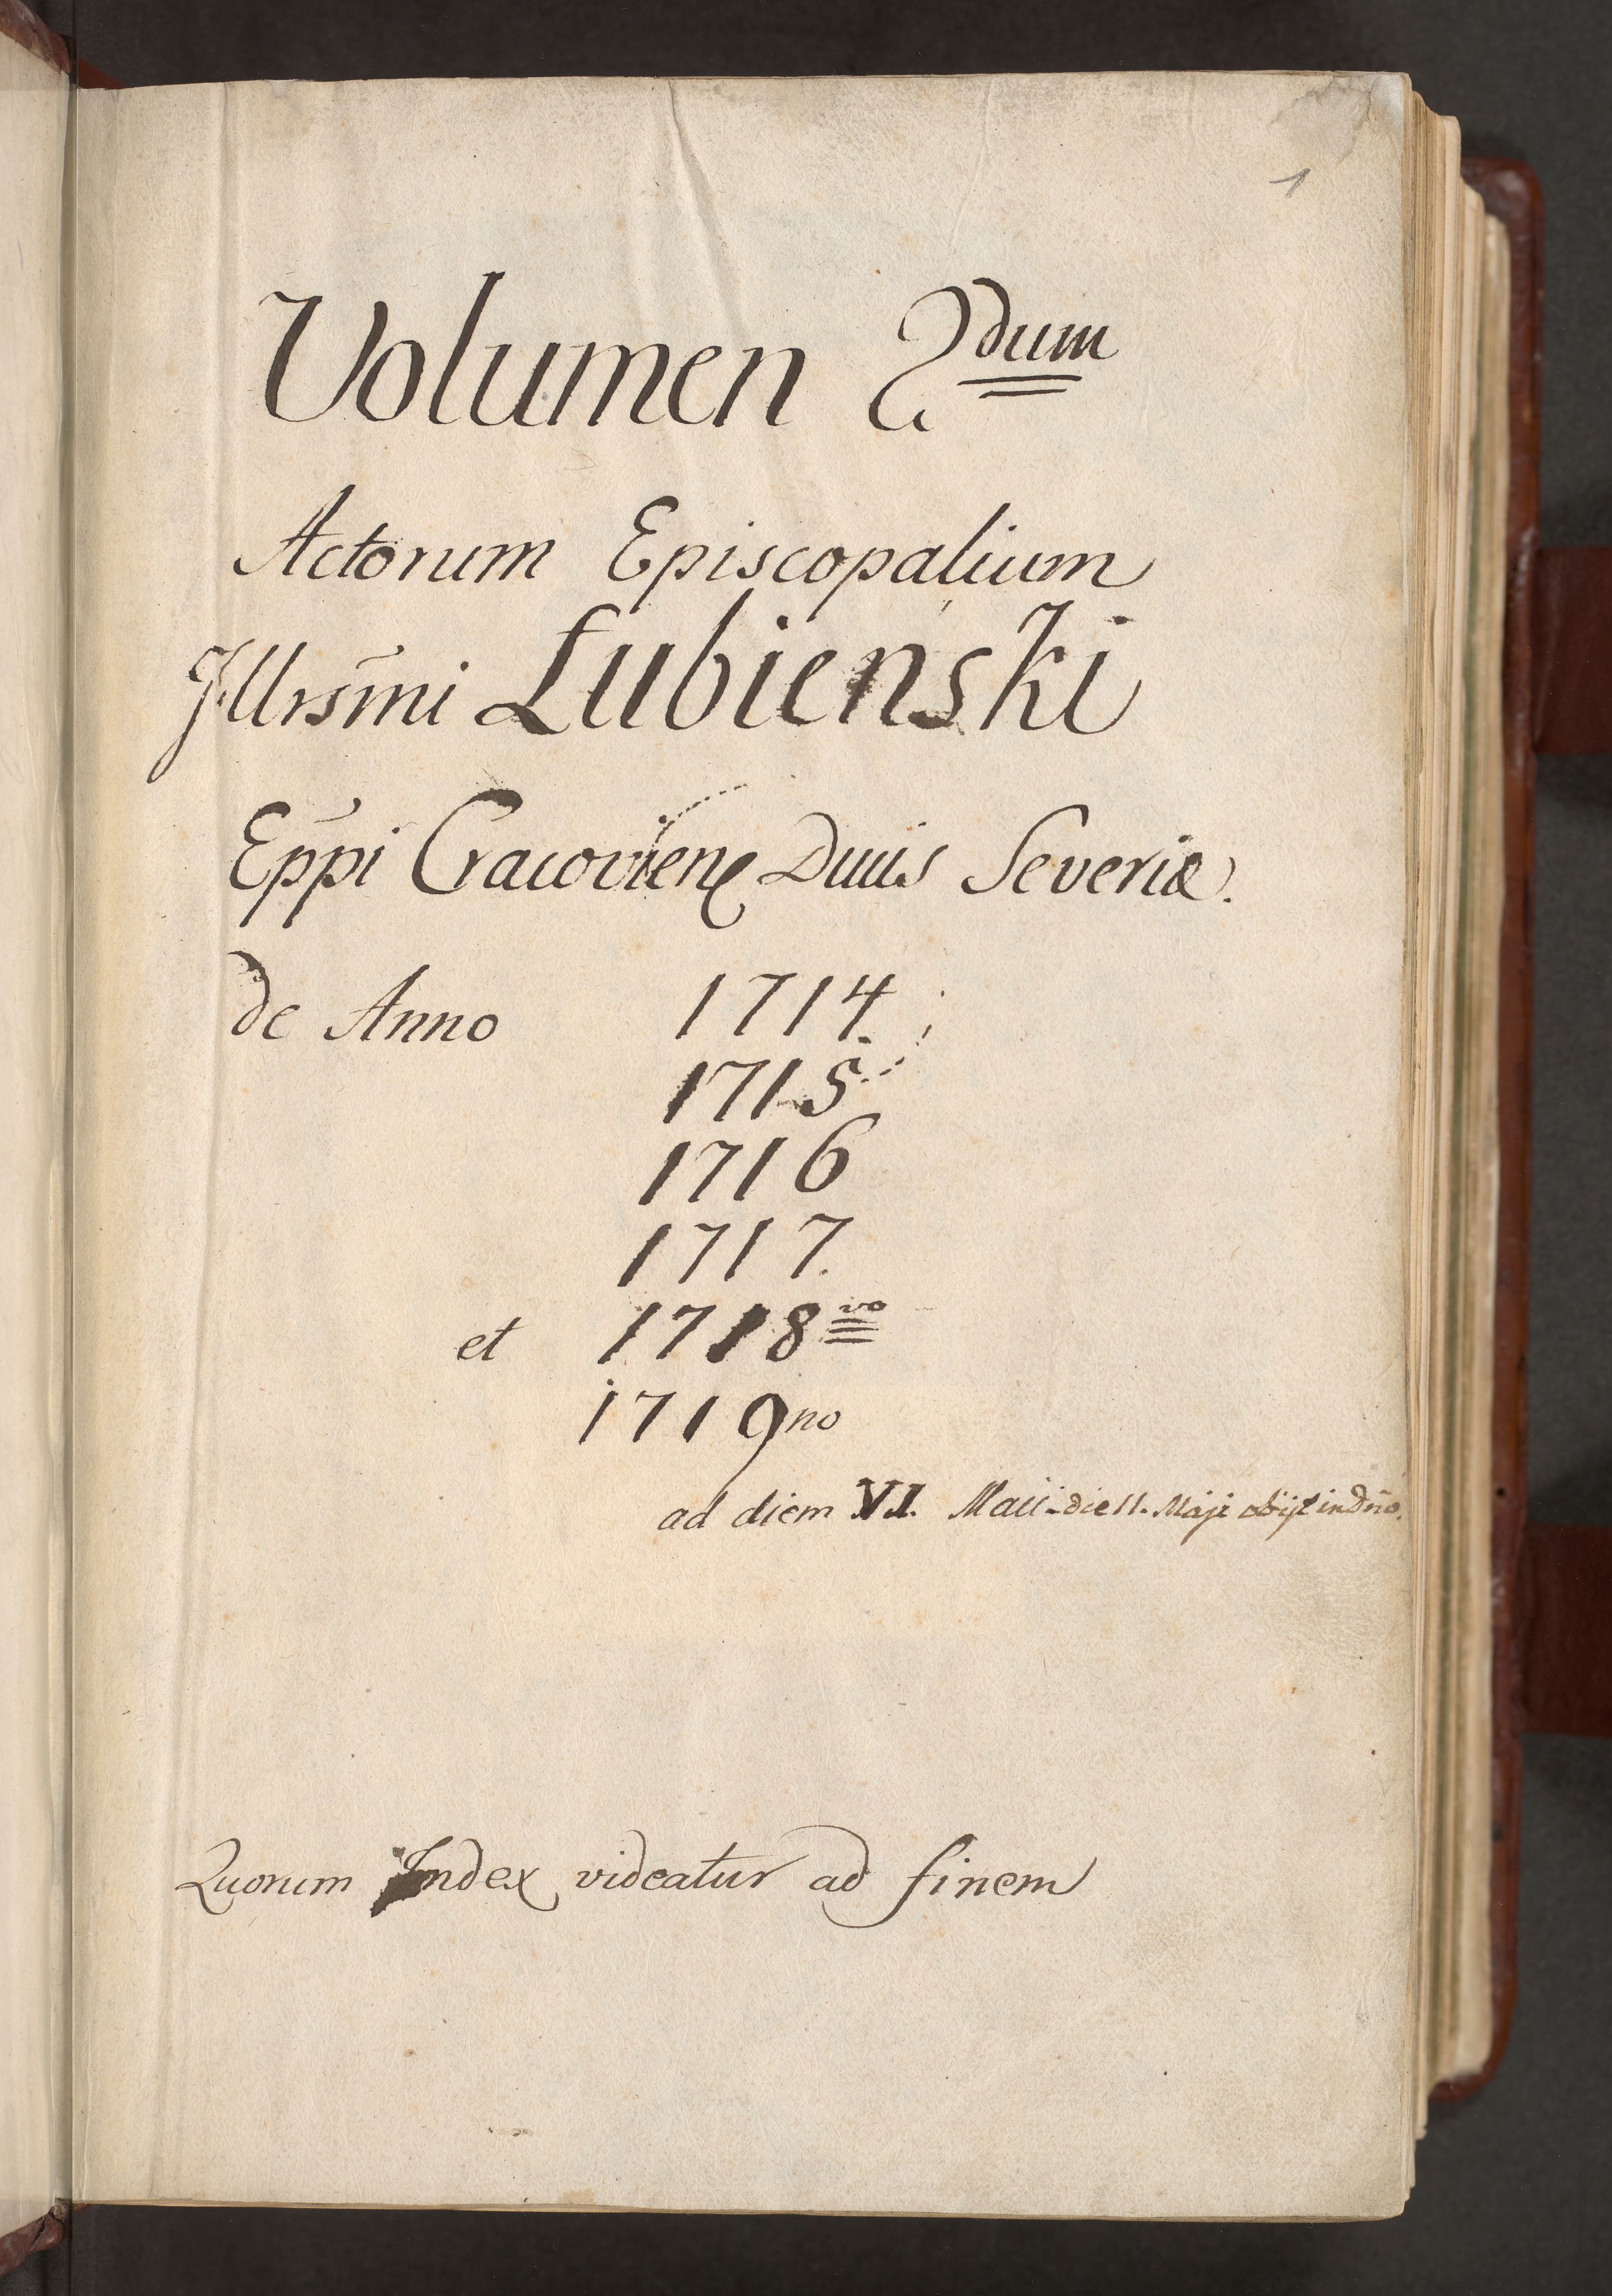 1
Volumen 2dum
Actorum Episcopalium
Jllrsm̃i Łubienski
Epp̃i Cracovien Ducis Severiæ.
de Anno 1714.
1715
1716
1717.
et 1718vo
1719no
ad diem VI. Maii - die 11. Maji obijt in dño.
Quorum Index videatur ad finem